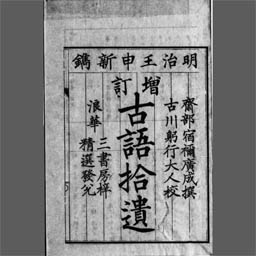 明治壬申新鐫
齋部宿禰廣成撰
古川躬行大人校
增訂
古語拾遺
三書房梓
浪華
精選發兌